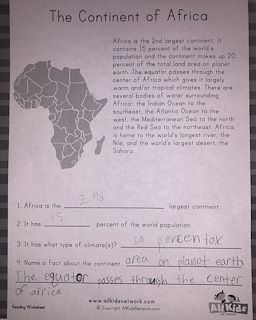 The Continent of Africa
Africa is the 2nd largest continent. It
contains 15 percent of the world's
population and the continent makes up 20
percent of the total land area on planet
earth. The equator passes through the
center of Africa which gives it largely
warm and/or tropical climates. There are
several bodies of water surrounding
Africa: the Indian Ocean to the
southeast, the Atlantic Ocean to the
west, the Mediterranean Sea to the north
and the Red Sea to the northeast. Africa
is home to the world's longest river, the
Nile, and the world's largest desert, the
Sahara.
1. Africa is the 2nd largest continent.
2. It has 15 percent of the world population.
3. It has what type of climate(s)? 20 percen tox
4. Name a fact about the continent: area on planet earth
The equator passes through the center
of africa
www.allkidsnetwork.com
Reading Worksheet
© Copyright AllKidsNetwork.com
All Kids
NETWORK